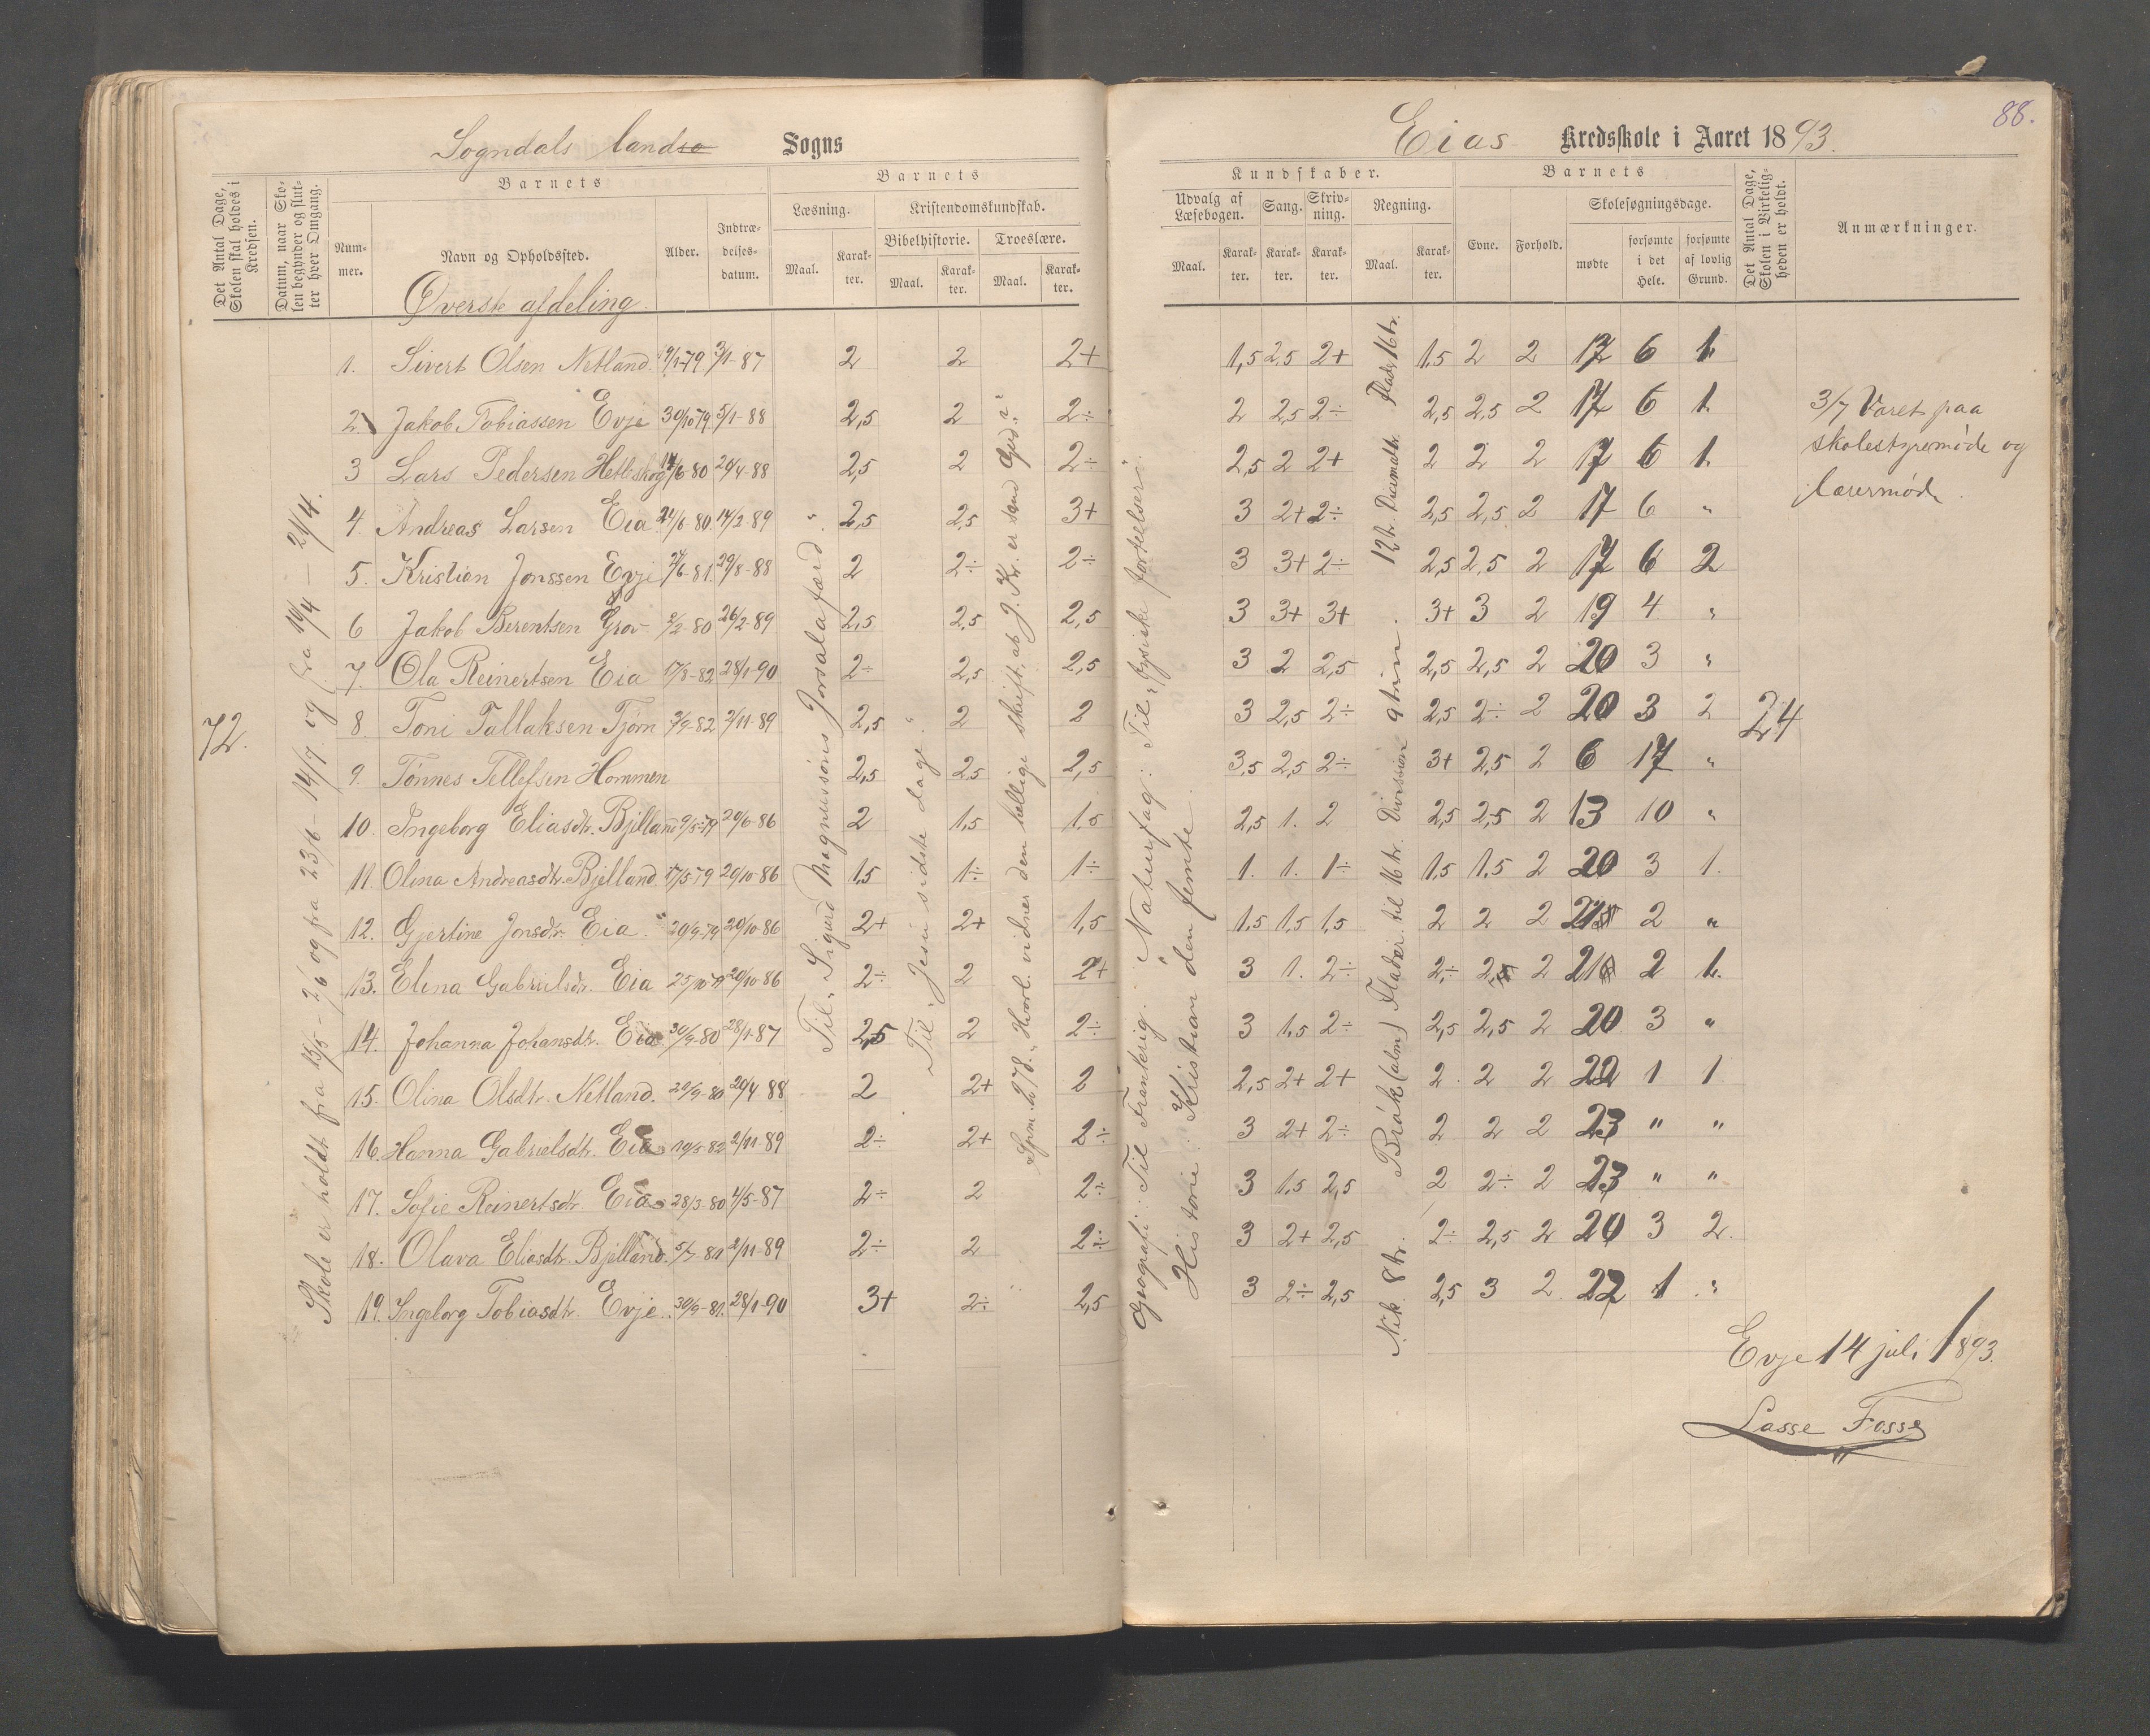 Sogndals landso Sogns
Det Antal Dage, Skolen skal holdes i Kredsen.
Datum, naar Skolen begynder og slutter hver Omgang.
Barnets
Nummer.
Navn og Opholdssted.
Alder.
Indtrædelsesdatum.
Barnets
Læsning.
Kristendomskundskab.
Bibelhistorie.
Troeslære.
Maal.
Karakter.
Maal.
Karakter.
Maal.
Karakter.
Øverste afdeling.
1. Sivert Olsen Netland 9/1-79 3/1-87 2 2 2+
2. Jakob Tobiassen Evje 30/10 79 5/1-88 2,5 2 2÷
3 Lars Pedersen Hetleskog 14/6-80 20/4-88 2,5 2 2÷
4. Andreas Larsen Eia 24/6-80. 14/2-89 2,5 2,5 3+
5. Kristian Jonssen Evje 24/6-81. 29/8-88 2 2÷ 2÷
6 Jakob Berentsen Grov 2/2-80 26/2-89 2,5 2,5 2,5
7. Ola Reinertsen Eia 17/8-82 28/1-90 2÷ 2,5 2,5
8. Toni Tallaksen Tjörn 3/9-82 2/11-89 2,5 2 2
9. Tönnes Tellefsen Hommen 2,5 2,5 2,5
10. Ingeborg Eliasdtr. Bjilland 9/5-79 20/6-86 2 1,5 1,5
11. Olina Andreasdtr. Bjelland 17/5-79 20/10-86 1,5 1÷ 1÷
12. Gjertine Jonsdtr. Eia 29/9-79 20/10-86 2+ 2+ 1,5
13. Elina Gabrielsdtr. Eia 25/10-79 20/10-86 2÷ 2 2+
14. Johanna Johansdtr. Eia 30/9-80 28/1-87 2,5 2 2÷
15. Olina Olsdtr. Netland. 20/9-80 20/4-88 2 2+ 2
16. Hanna Gabrielsdtr. Eia 19/5-82 2/11-89 2÷ 2+ 2÷
17. Sofie Reinertsdtr Eia 28/3-80 4/5-87 2÷ 2 2÷
18. Olava Eliasdtr. Bjelland. 5/7-81 2/11-89 2÷ 2 2÷
19. Ingeborg Tobiasdtr. Evje. 30/9-81. 28/1-90 3+ 2÷ 2,5
72.
Skole er holdt fra 15/5 - 2/6 og fra 23/6 - 14/7. og fra 10/4 - 21/4.
Til „Sigurd Magnussöns Jorsalafærd".
Til „Jesu sidste dage".
Spm. 278. „Hvorl. vidner den hellige skrift, at J. Kr. er sand Gud?"
88.
Eias Kredsskole i Aaret 1893.
Kundskaber.
Udvalg af Læsebogen.
Sang.
Skrivning.
Regning.
Maal.
Karakter.
Karakter.
Karakter.
Maal.
Karakter.
Barnets
Evne.
Forhold.
Skolesøgningsdage.
mødte
forsømte i det Hele.
forsømte af lovlig Grund.
Det Antal Dage, Skolen i Virkeligheden er holdt.
Anmærkninger.
1,5 2,5 2+ 1,5 2 2 17 6 1.
2 2,5 2÷ 2,5 2,5 2 17 6 1.
2,5 2 2+ 2 2 2 17 6 1.
3 2+ 2÷ 2,5 2,5 2 17 6 "
3 3+ 2÷ 2,5 2,5 2 17 6 2
3 3+ 3+ 3+ 3 2 19 4 "
3 2 2,5 2,5 2,5 2 20 3 "
3 2,5 2÷ 2,5 2÷ 2 20 3 2
3,5 2,5 2÷ 3+ 2,5 2 6 17 "
2,5 1. 2 2,5 2,5 2 13 10 "
1. 1. 1÷ 1,5 1,5 2 20 3 1.
1,5 1,5 1,5 2 2 2 21 2 "
3 1. 2÷ 2÷ 2 2 21 2 1.
3 1,5 2÷ 2,5 2,5 2 20 3 "
2,5 2+ 2+ 2 2 2 22 1 1
3 2+ 2÷ 2 2 2 23 " "
3 1,5 2,5 2 2÷ 2 23 " "
3 2+ 2,5 2÷ 2,5 2 20 3 2.
3 2÷ 2,5 2,5 3 2 22 1 "
24
Geografi: Til Frankerig. Naturfag: Til „Fysiske fortelser".
Historie: Kristian den femte.
3/7 Varet paa
skolestyremöde og
lærermöde.
Evje 14 juli 1893.
Lasse Fosse